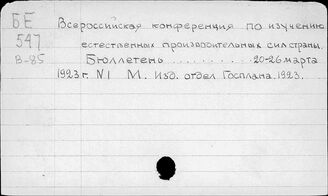 БЕ
547
В-85
Всероссийская конференция по изучению
естественных производительных сил страны.
Бюллетень .......... 20-26 марта
1923 г. №1 М. Изд. отдел Госплана. 1923.